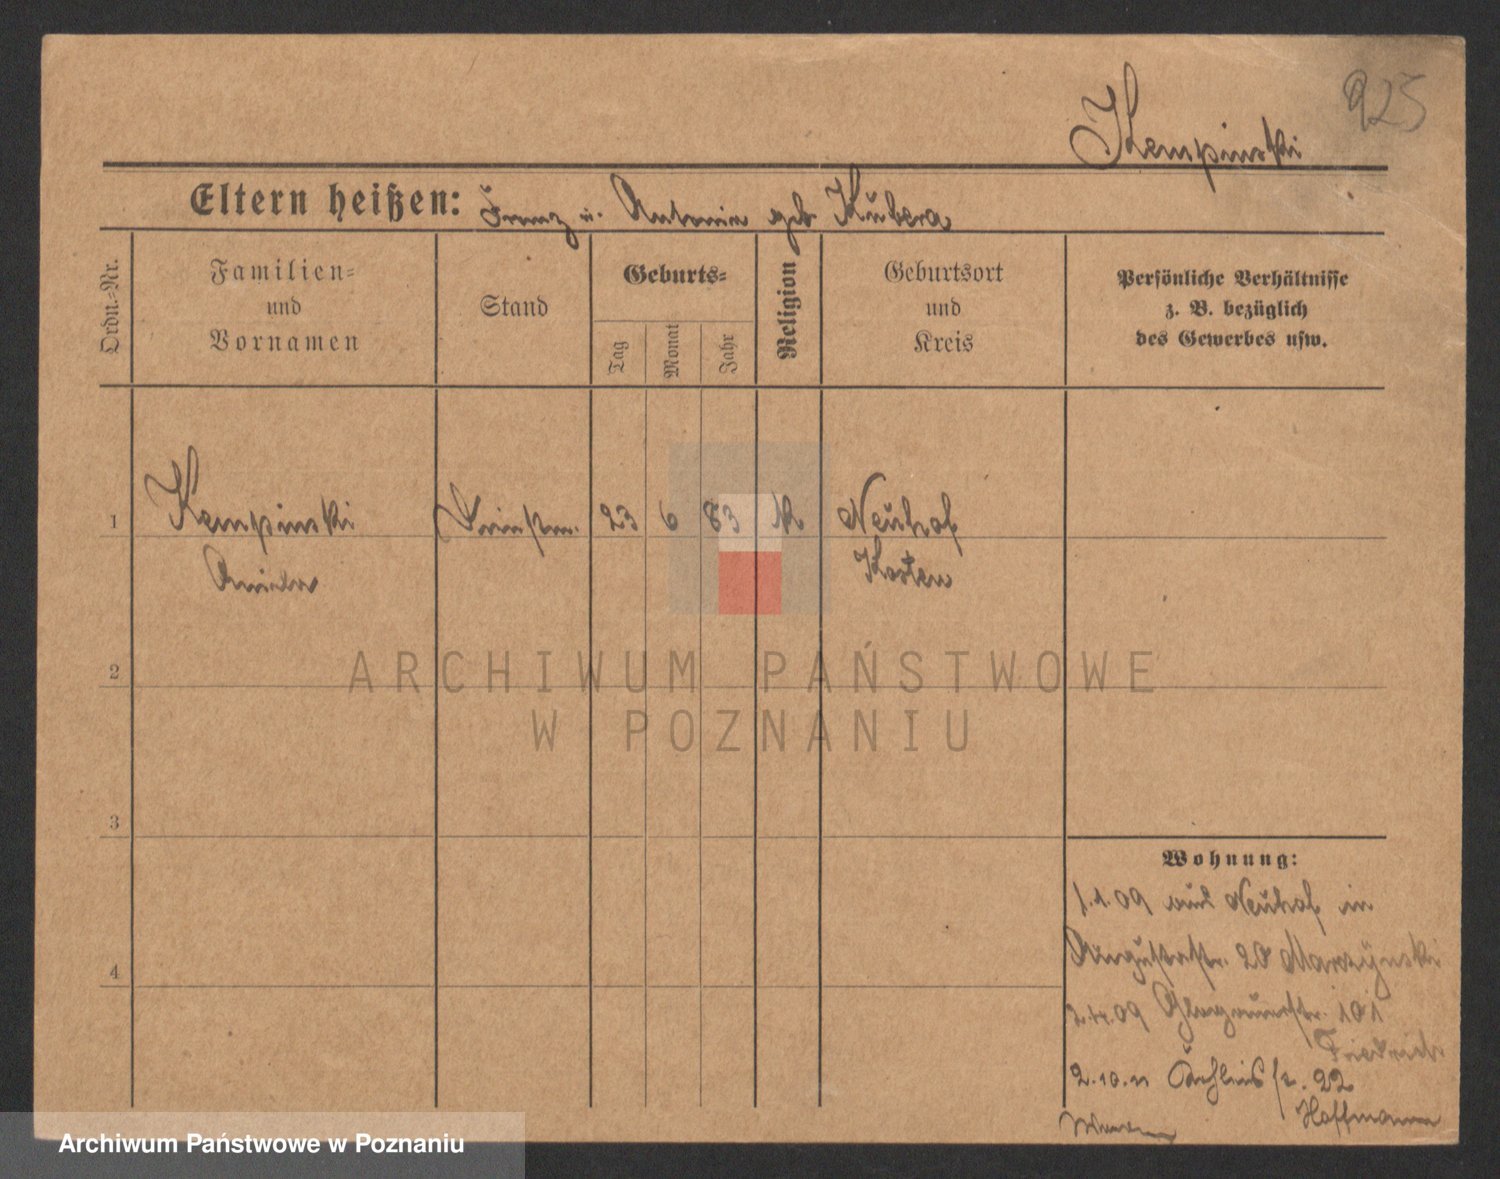 925
Kempinski
Eltern heißen: Franz u. Antonin geb Kubera
Ordn.-Nr.
Familien-
und
Vornamen
Stand
Geburts-
Tag
Monat
Jahr
Religion
Geburtsort
und
Kreis
Persönliche Verhältnisse
z. B. bezüglich
des Gewerbes usw.
1 Kempinski 23 6 83 k Neuhof
Kosten
2
3
4
Wohnung:
1.1.09 aus Neuhof in
Augustastr. 20 Marzynski
2.4.09 101
Friedrich
2.10.11 22
Hoffmann
ARCHIWUM PAŃSTWOWE
W POZNANIU
Archiwum Państwowe w Poznaniu